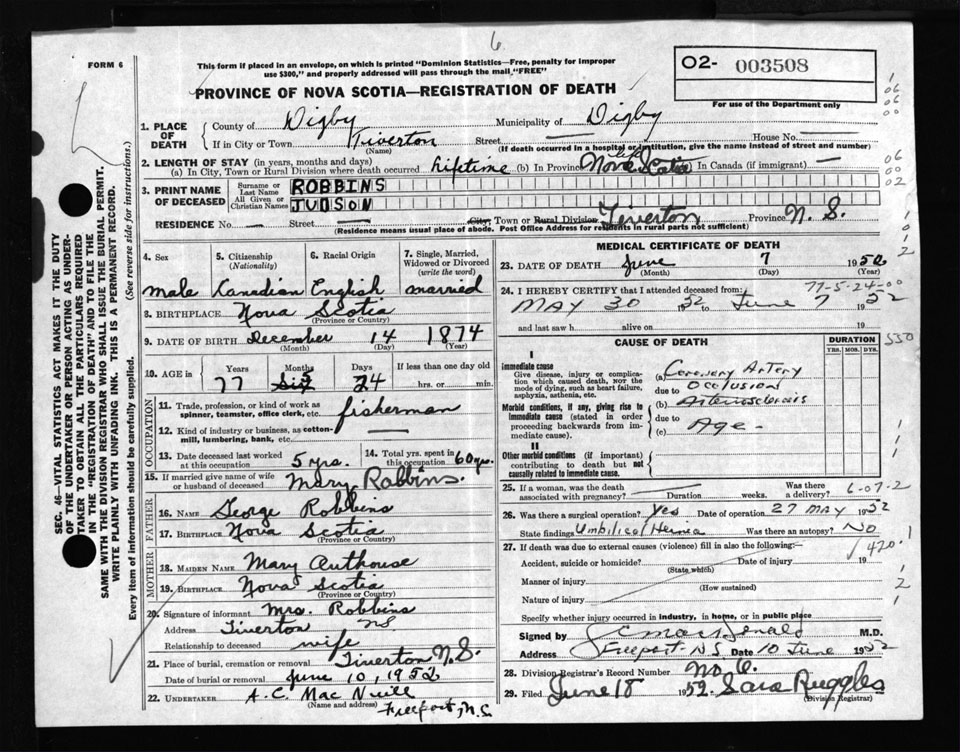 6.
FORM 6
This form if placed in an envelope, on which is printed "Dominion Statistics—Free, penalty for improper
use $300," and properly addressed will pass through the mail "FREE"
PROVINCE OF NOVA SCOTIA—REGISTRATION OF DEATH
O2- 003508
For use of the Department only
1. PLACE OF DEATH
County of Digby Municipality of Digby
If in City or Town Tiverton Street House No.
(Name) (If death occurred in a hospital or institution, give the name instead of street and number)
2. LENGTH OF STAY (in years, months and days)
(a) In City, Town or Rural Division where death occurred lifetime (b) In Province Nova Scotia In Canada (if immigrant) —
3. PRINT NAME OF DECEASED
Surname or Last Name ROBBINS
All Given or Christian Names JUDSON
RESIDENCE No. — Street — City, Town or Rural Division Tiverton Province N. S.
(Residence means usual place of abode. Post Office Address for residents in rural parts not sufficient)
4. Sex
male
5. Citizenship (Nationality)
Canadian
6. Racial Origin
English
7. Single, Married, Widowed or Divorced (write the word)
married
8. BIRTHPLACE Nova Scotia
(Province or Country)
9. DATE OF BIRTH December 14 1874
(Month) (Day) (Year)
10. AGE in Years Months Days If less than one day old
77 Six 5 24 hrs. or min.
OCCUPATION
11. Trade, profession, or kind of work as fisherman
spinner, teamster, office clerk, etc.
12. Kind of industry or business, as cotton-
mill, lumbering, bank, etc. —
13. Date deceased last worked at this occupation 5 yrs.
14. Total yrs. spent in this occupation 60 yrs.
15. If married give name of wife or husband of deceased Mary Robbins.
FATHER
16. Name George Robbins
17. Birthplace Nova Scotia
(Province or Country)
MOTHER
18. Maiden Name Mary Outhouse
19. Birthplace Nova Scotia
(Province or Country)
20. Signature of informant Mrs. Robbins
Address Tiverton NS
Relationship to deceased wife
21. Place of burial, cremation or removal Tiverton N.S.
Date of burial or removal June 10, 1952
22. UNDERTAKER A. C. Mac Neill
(Name and address) Freeport, N.S.
MEDICAL CERTIFICATE OF DEATH
23. DATE OF DEATH June 7 1952
(Month) (Day) (Year)
77-5-24-00
24. I HEREBY CERTIFY that I attended deceased from:
MAY 30 1952 to June 7 1952
and last saw h alive on 19
CAUSE OF DEATH
DURATION
YRS. MOS. DYS.
I
Immediate cause
Give disease, injury or complication which caused death, NOT the mode of dying, such as heart failure, asphyxia, asthenia, etc.
(a) Coronary Artery
due to Occlusion
Morbid conditions, if any, giving rise to immediate cause (stated in order proceeding backwards from immediate cause).
(b) Arteriosclerosis
due to
(c) Age -
II
Other morbid conditions (if important) contributing to death but not causally related to immediate cause.
25. If a woman, was the death associated with pregnancy? Duration weeks. Was there a delivery?
6-07-2
26. Was there a surgical operation? Yes Date of operation 27 MAY 1952
State findings Umbilical Hernia Was there an autopsy? NO
27. If death was due to external causes (violence) fill in also the following:—
420.1
Accident, suicide or homicide? Date of injury 19
(State which)
Manner of injury
(How sustained)
Nature of injury
Specify whether injury occurred in industry, in home, or in public place
Signed by M.D.
Address Freeport NS Date 10 June 1952
28. Division Registrar's Record Number No. 6.
29. Filed June 18 1952. Sara Ruggles
(Division Registrar)
SEC. 46—VITAL STATISTICS ACT MAKES IT THE DUTY
OF THE UNDERTAKER OR PERSON ACTING AS UNDER-
TAKER TO OBTAIN ALL THE PARTICULARS REQUIRED
IN THE "REGISTRATION OF DEATH" AND TO FILE THE
SAME WITH THE DIVISION REGISTRAR WHO SHALL ISSUE THE BURIAL PERMIT.
WRITE PLAINLY WITH UNFADING INK. THIS IS A PERMANENT RECORD.
Every item of information should be carefully supplied. (See reverse side for instructions.)